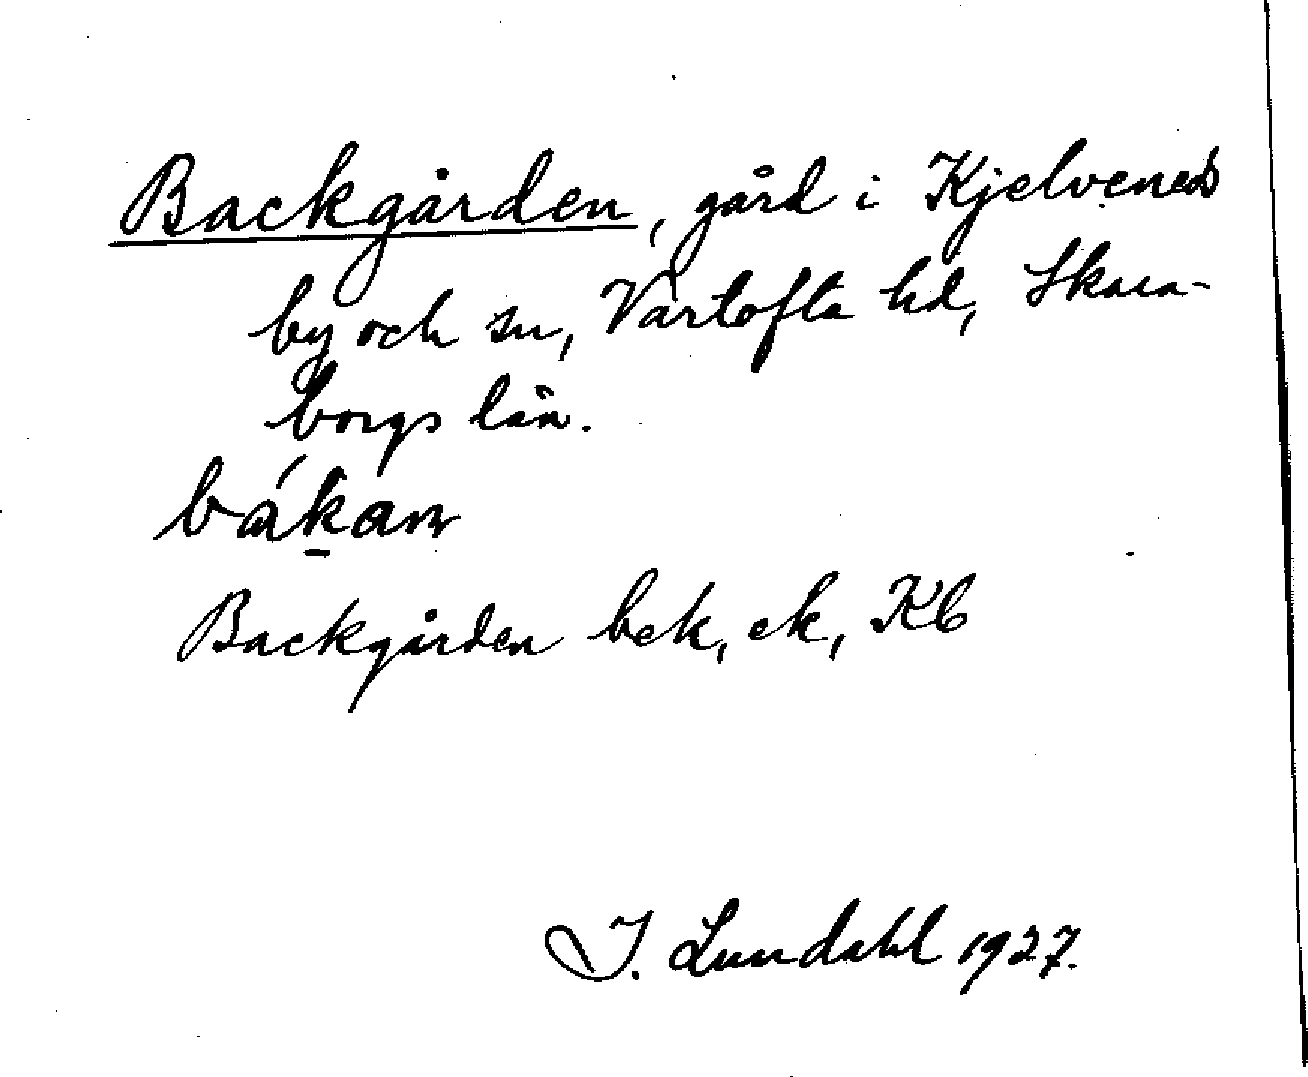 Backgården, gård i Kjelvened
by och sn, Vartofta hd, Skara-
borgs län.
bákan
Backgården bek, ek, Kb
I. Lundahl 1927.